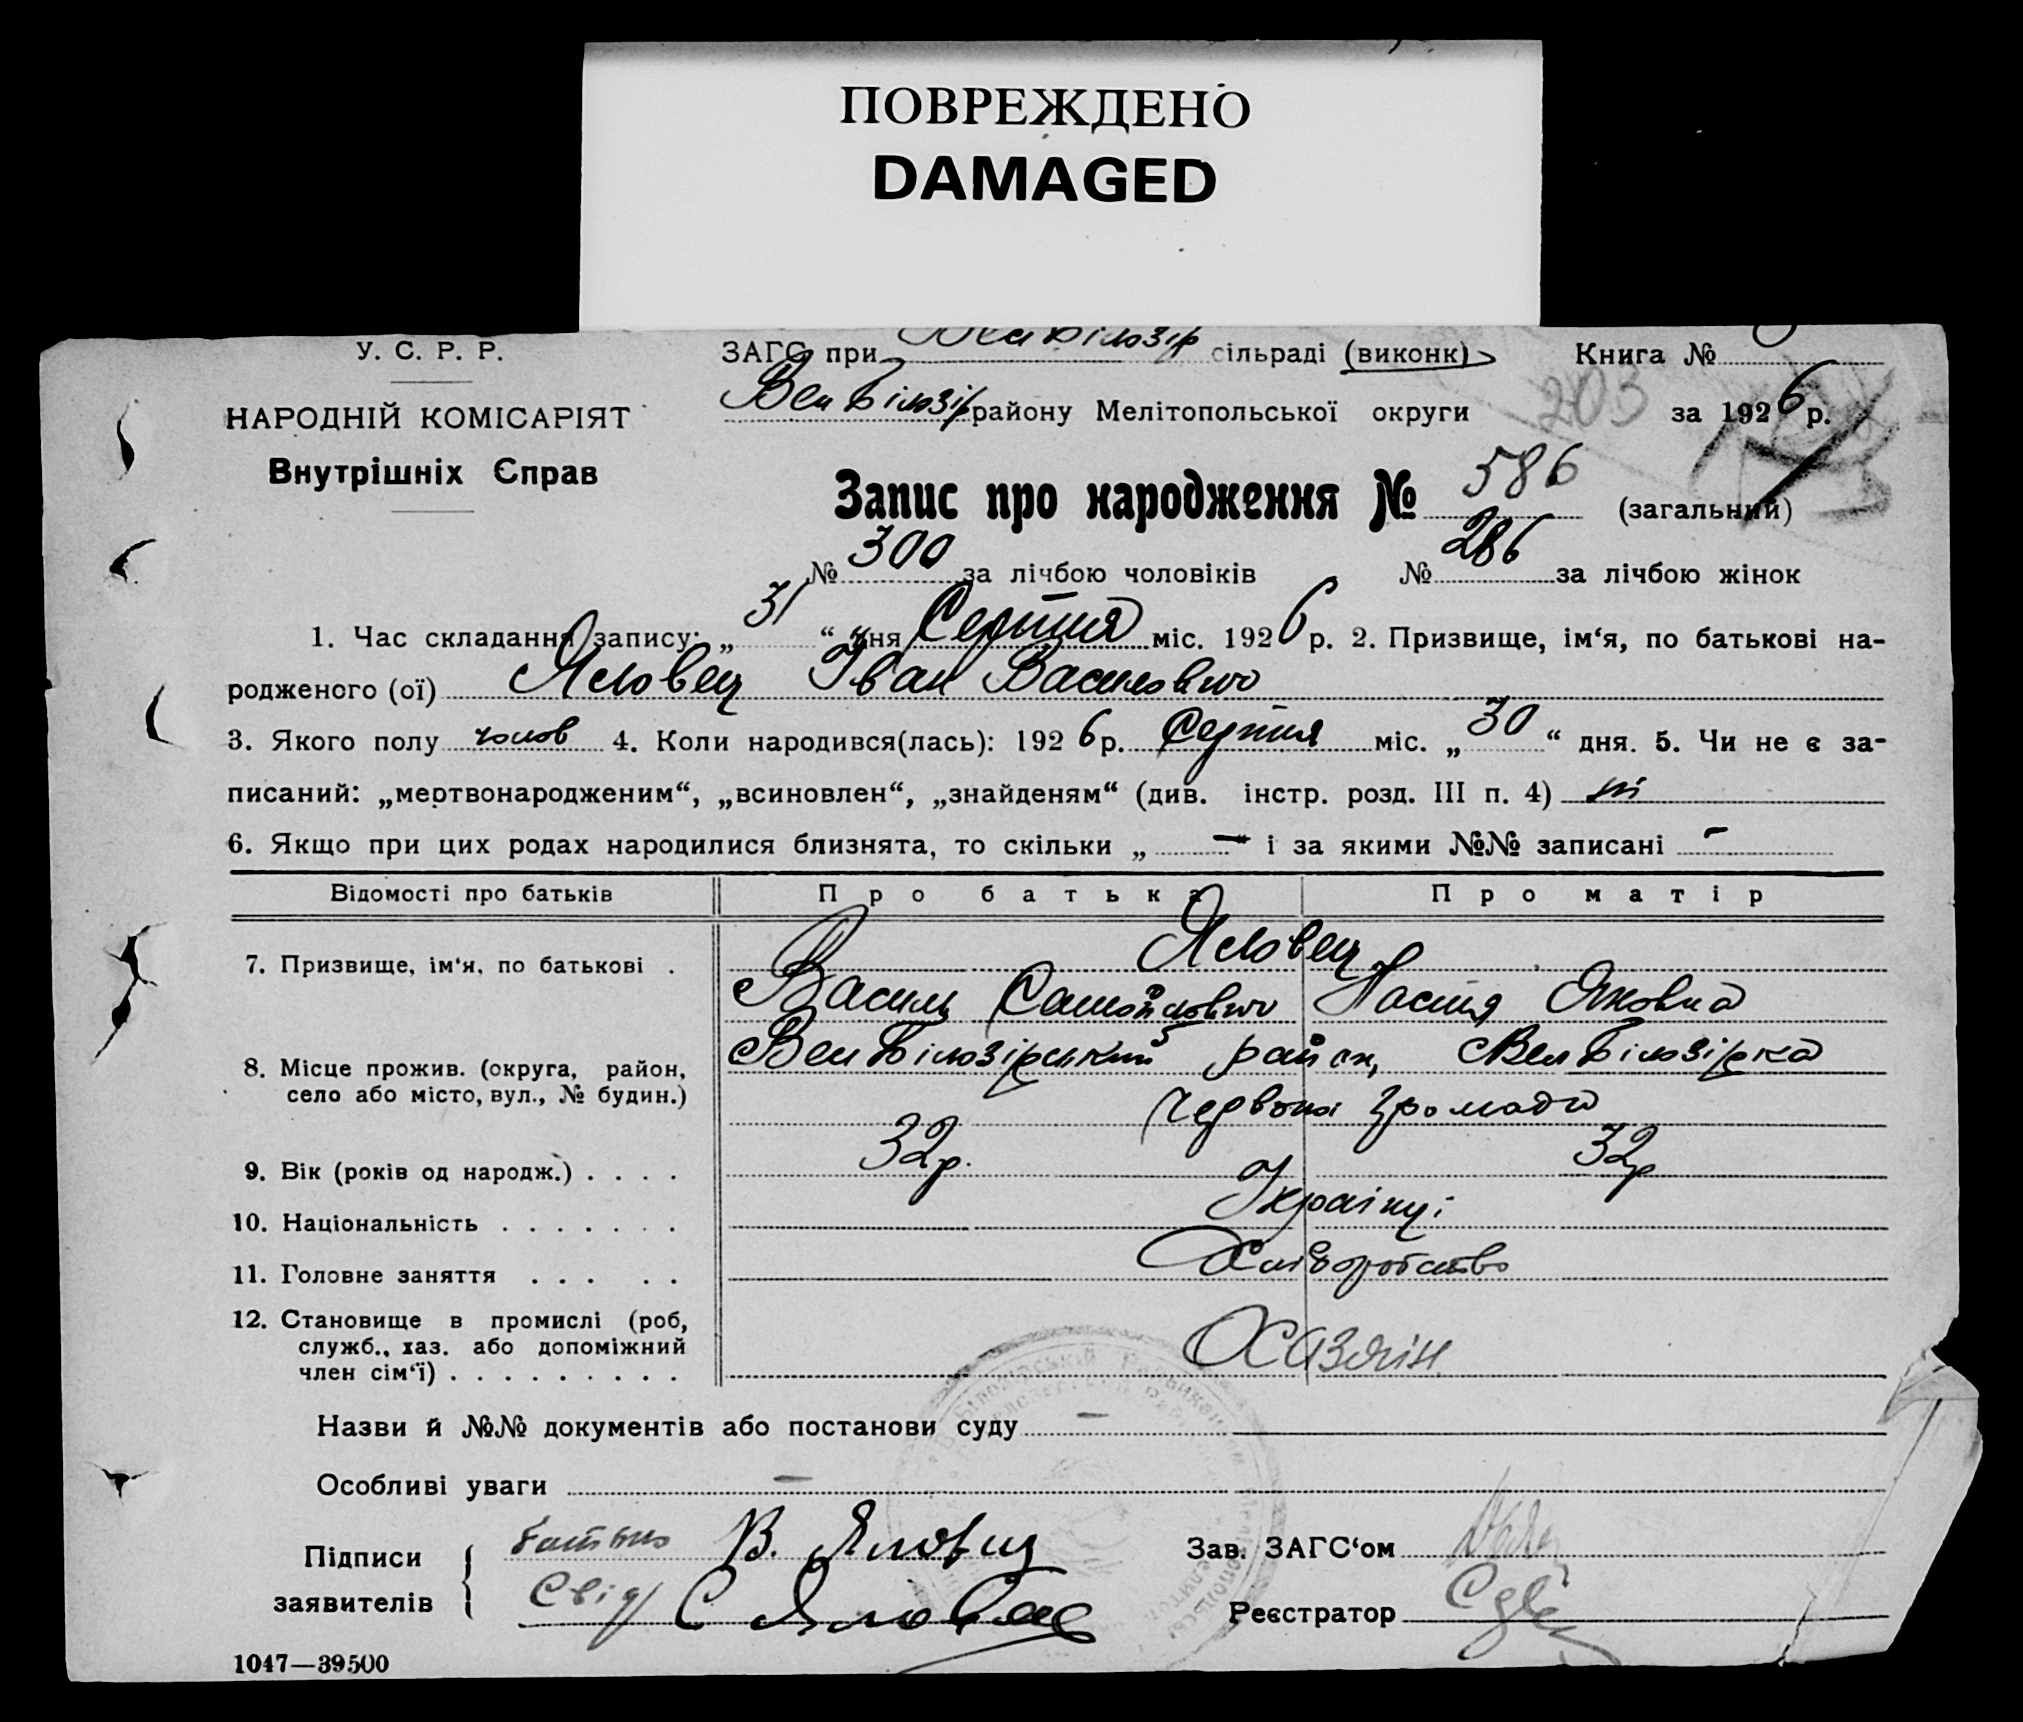 ПОВРЕЖДЕНО
DAMAGED
У. С. Р. Р.
ЗАГС при Вел Білозір сільраді (виконк)
Книга №
НАРОДНІЙ КОМІСАРІЯТ
Вел Білозір району Мелітопольської округи
203
за 1926 р.
Внутрішніх Справ
Запис про народження № 586 (загальний)
№ 300 за лічбою чоловіків № 286 за лічбою жінок
1. Час складання запису: „31“ дня Серпня міс. 1926 р. 2. Призвище, ім‘я, по батькові на-
родженого (ої) Яловец Іван Василович
3. Якого полу чолов 4. Коли народився(лась): 1926 р. Серпня міс. „30“ дня. 5. Чи не є за-
писаний: „мертвонародженим“, „всиновлен“, „знайденям“ (див. інстр. розд. III п. 4) ні
6. Якщо при цих родах народилися близнята, то скільки „ — “ і за якими №№ записані —
Відомості про батьків Про батька Про матір
7. Призвище, ім‘я, по батькові .
Яловец
Василь Самойлович Настя Яковна
8. Місце прожив. (округа, район,
село або місто, вул., № будин.)
Вел Білозірський район, Вел Білозірка
Червоної громади
9. Вік (років од народж.) . . . . 32р. 32р
10. Національність . . . . . . . Українці
11. Головне заняття . . . . . Хліборобство
12. Становище в промислі (роб,
служб., хаз. або допоміжний
член сім‘ї) . . . . . . . . . Хазяїн
Назви й №№ документів або постанови суду —
Особливі уваги —
Підписи
заявителів
батько В. Яловец
Свід С Яловец
Зав. ЗАГС‘ом
Реєстратор
1047—39500